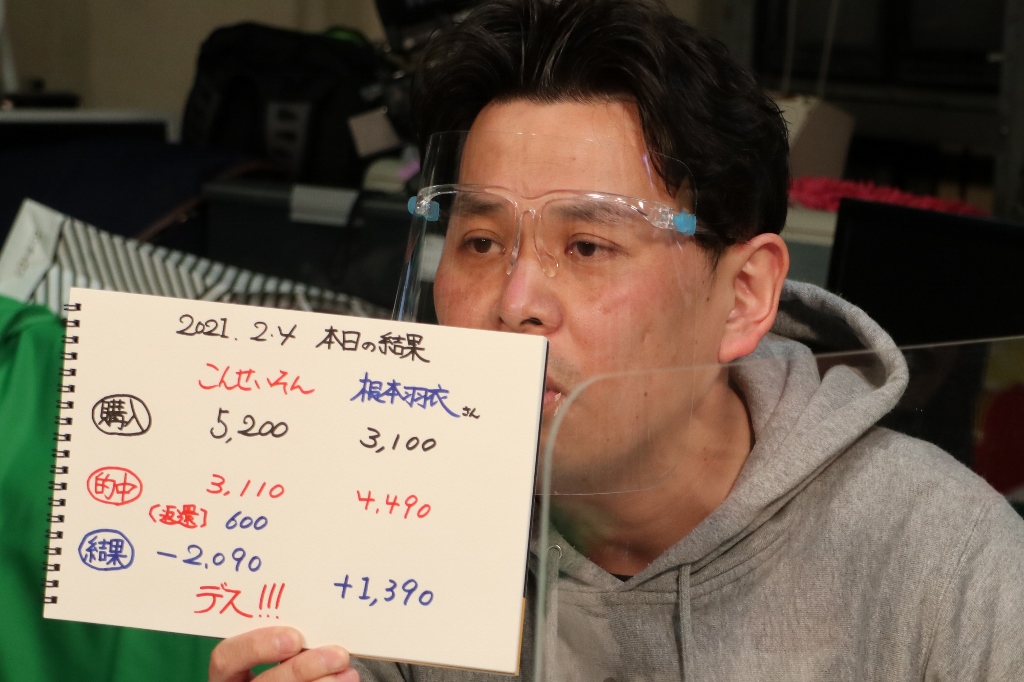 2021.2.4 本日の結果
こんせいそん 根本羽衣さん
購入 5,200 3,100
的中 3,110 4,490
(返還] 600
結果 -2,090 +1,390
デス!!!